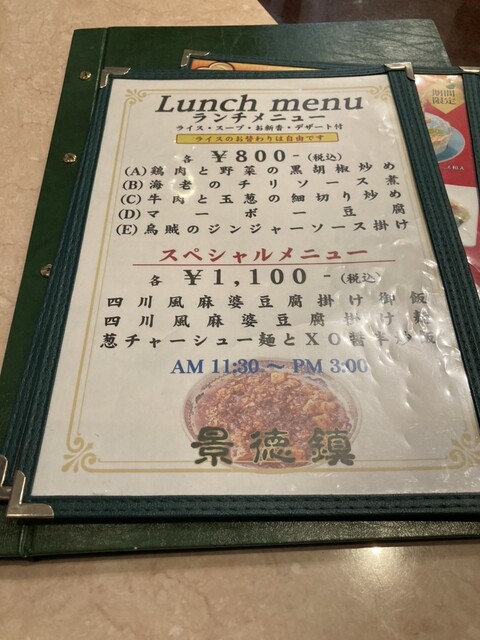 Lunch menu
ランチメニュー
ライス・スープ・お新香・デザート付
ライスのお替わりは自由です
各 ¥800-(税込)
(A)鶏肉と野菜の黒胡椒炒め
(B)海老のチリソース煮
(C)牛肉と玉葱の細切り炒め
(D)マーボー豆腐
(E)烏賊のジンジャーソース掛け
スペシャルメニュー
各 ¥1,100-(税込)
四川風麻婆豆腐掛け御飯
四川風麻婆豆腐掛け麺
葱チャーシュー麺とXO醤半炒飯
AM 11:30 ~ PM 3:00
景德鎮
期間
限定